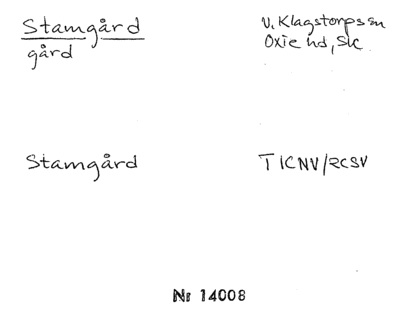 Stamgård
gård
V. Klagstorps sn
Oxie hd, Sk
Stamgård
TICNV/RCSV
Nr 14008